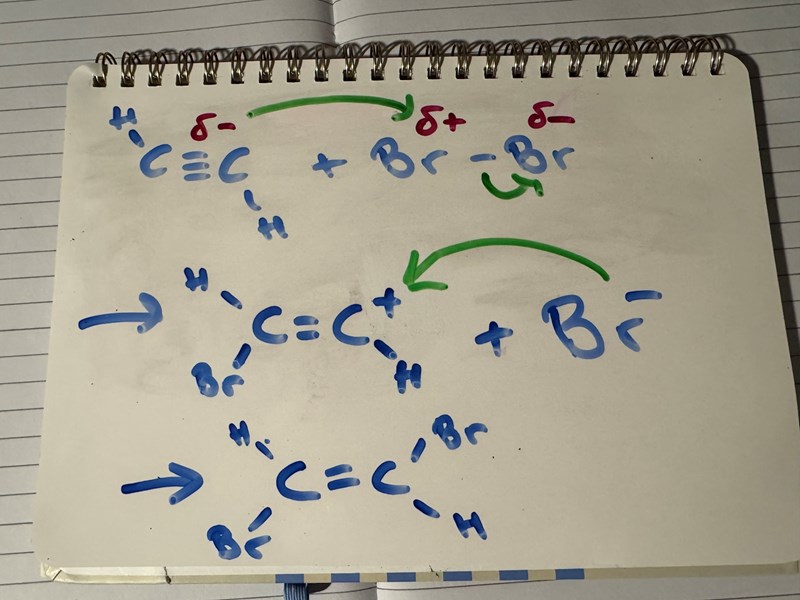 H δ- δ+ δ-
C≡C + Br-Br
H
H
→ C=C+ + Br-
Br H
H Br
→ C=C
Br H